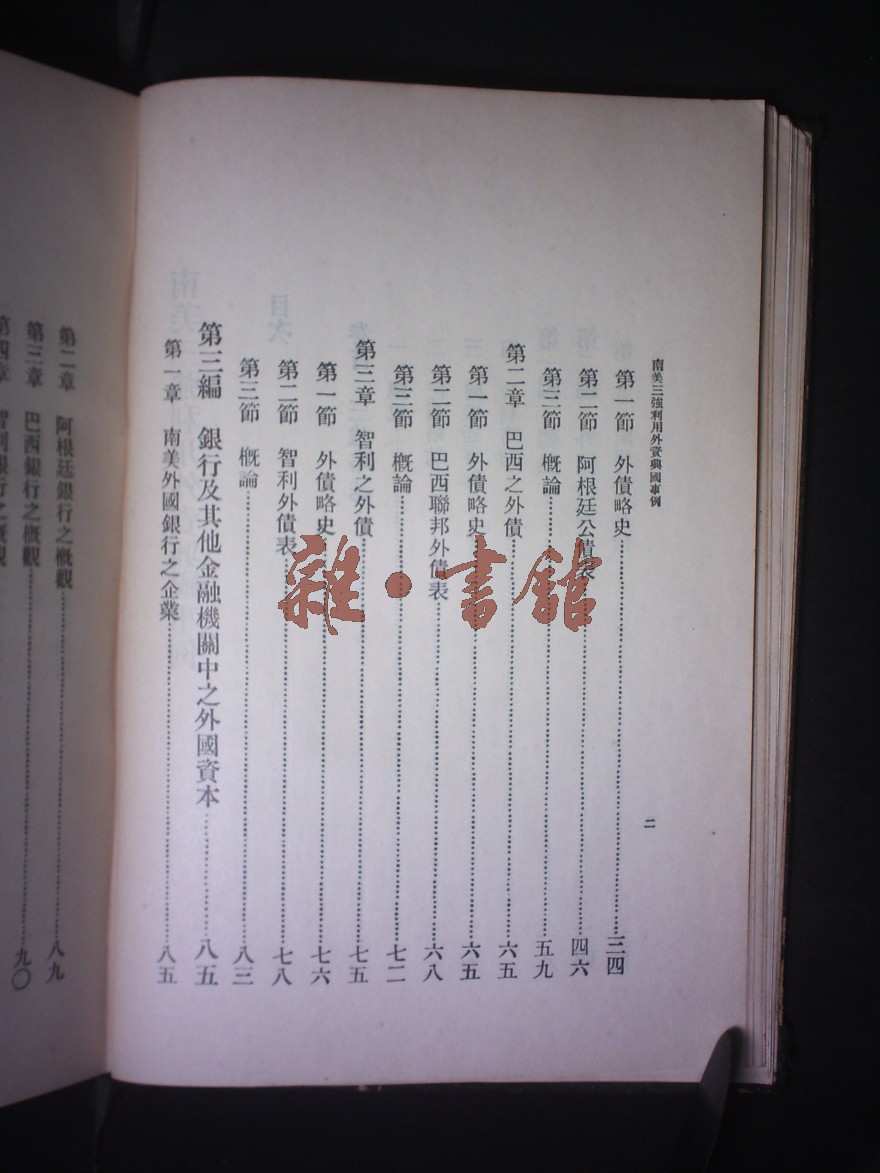 南美三強利用外資興國事例
二
第一節 外債略史……三四
第二節 阿根廷公債表……四六
第三節 概論……五九
第二章 巴西之外債……六五
第一節 外債略史……六五
第二節 巴西聯邦外債表……六八
第三節 概論……七二
第三章 智利之外債……七五
第一節 外債略史……七六
第二節 智利外債表……七八
第三節 概論……八三
第三編 銀行及其他金融機關中之外國資本……八五
第一章 南美外國銀行之企業……八五
第二章 阿根廷銀行之概觀……八九
第三章 巴西銀行之概觀……九〇
第四章 智利銀行之概觀
雜·書館